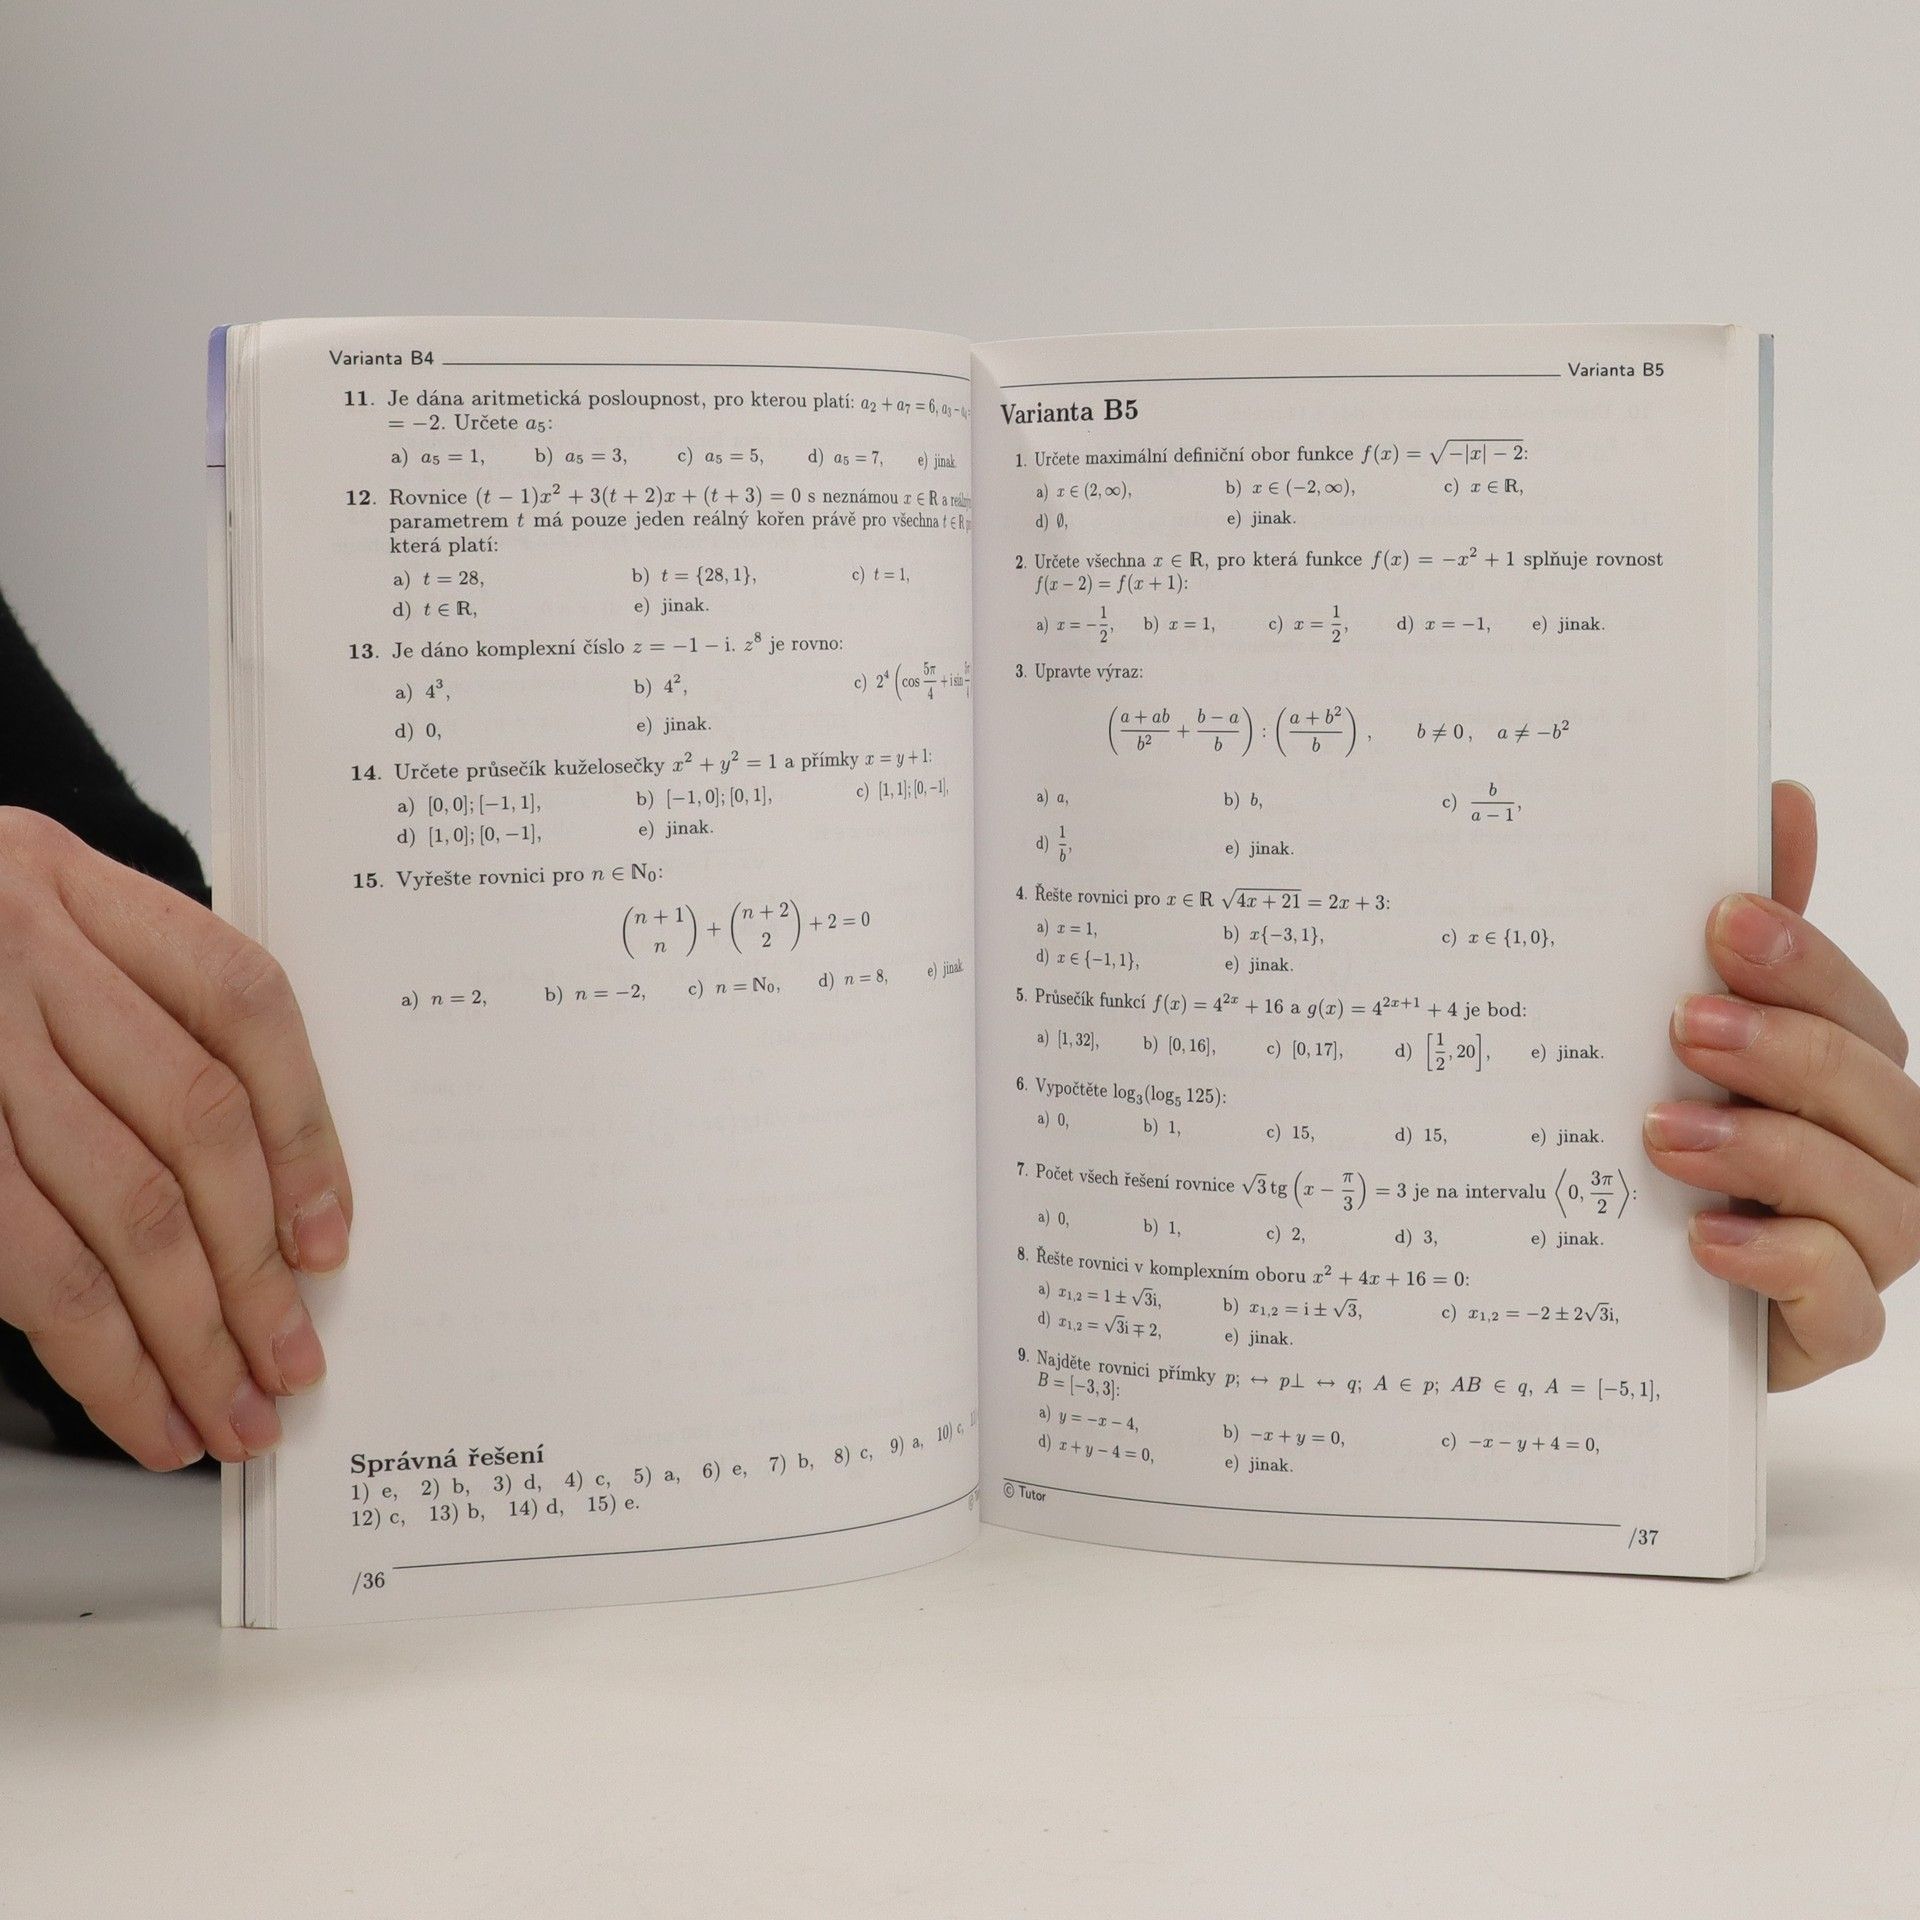 Varianta B4
11. Je dána aritmetická posloupnost, pro kterou platí: a₂ + a₇ = 6, a₃ − a₄
= −2. Určete a₅:
a) a₅ = 1, b) a₅ = 3, c) a₅ = 5, d) a₅ = 7, e) jinak.
12. Rovnice (t − 1)x² + 3(t + 2)x + (t + 3) = 0 s neznámou x ∈ ℝ a
parametrem t má pouze jeden reálný kořen právě pro všechna t ∈ ℝ
která platí:
a) t = 28, b) t = {28, 1}, c) t = 1,
d) t ∈ ℝ, e) jinak.
13. Je dáno komplexní číslo z = −1 − i. z⁸ je rovno:
a) 4³, b) 4², c) 2⁴ (cos 5π/4 + i sin
d) 0, e) jinak.
14. Určete průsečík kuželosečky x² + y² = 1 a přímky x = y + 1:
a) [0, 0]; [−1, 1], b) [−1, 0]; [0, 1], c) [1, 1]; [0, −1],
d) [1, 0]; [0, −1], e) jinak.
15. Vyřešte rovnici pro n ∈ ℕ₀:
(n + 1 n) + (n + 2 2) + 2 = 0
a) n = 2, b) n = −2, c) n = ℕ₀, d) n = 8, e) jinak
Správná řešení
1) e, 2) b, 3) d, 4) c, 5) a, 6) e, 7) b, 8) c, 9) a, 10) c,
12) c, 13) b, 14) d, 15) e.
/36
Varianta B5
Varianta B5
1. Určete maximální definiční obor funkce f(x) = √(−|x| − 2):
a) x ∈ (2, ∞), b) x ∈ (−2, ∞), c) x ∈ ℝ,
d) ∅, e) jinak.
2. Určete všechna x ∈ ℝ, pro která funkce f(x) = −x² + 1 splňuje rovnost
f(x − 2) = f(x + 1):
a) x = −1/2, b) x = 1, c) x = 1/2, d) x = −1, e) jinak.
3. Upravte výraz:
((a + ab)/b² + (b − a)/b) : ((a + b²)/b), b ≠ 0, a ≠ −b²
a) a, b) b, c) b/(a − 1),
d) 1/b, e) jinak.
4. Řešte rovnici pro x ∈ ℝ √(4x + 21) = 2x + 3:
a) x = 1, b) x{−3, 1}, c) x ∈ {1, 0},
d) x ∈ {−1, 1}, e) jinak.
5. Průsečík funkcí f(x) = 4²ˣ + 16 a g(x) = 4²ˣ⁺¹ + 4 je bod:
a) [1, 32], b) [0, 16], c) [0, 17], d) [1/2, 20], e) jinak.
6. Vypočtěte log₃(log₅ 125):
a) 0, b) 1, c) 15, d) 15, e) jinak.
7. Počet všech řešení rovnice √3 tg (x − π/3) = 3 je na intervalu ⟨0, 3π/2⟩:
a) 0, b) 1, c) 2, d) 3, e) jinak.
8. Řešte rovnici v komplexním oboru x² + 4x + 16 = 0:
a) x₁,₂ = 1 ± √3i, b) x₁,₂ = i ± √3, c) x₁,₂ = −2 ± 2√3i,
d) x₁,₂ = √3i ∓ 2, e) jinak.
9. Najděte rovnici přímky p; ↔ p⊥ ↔ q; A ∈ p; AB ∈ q, A = [−5, 1],
B = [−3, 3]:
a) y = −x − 4, b) −x + y = 0, c) −x − y + 4 = 0,
d) x + y − 4 = 0, e) jinak.
© Tutor
/37